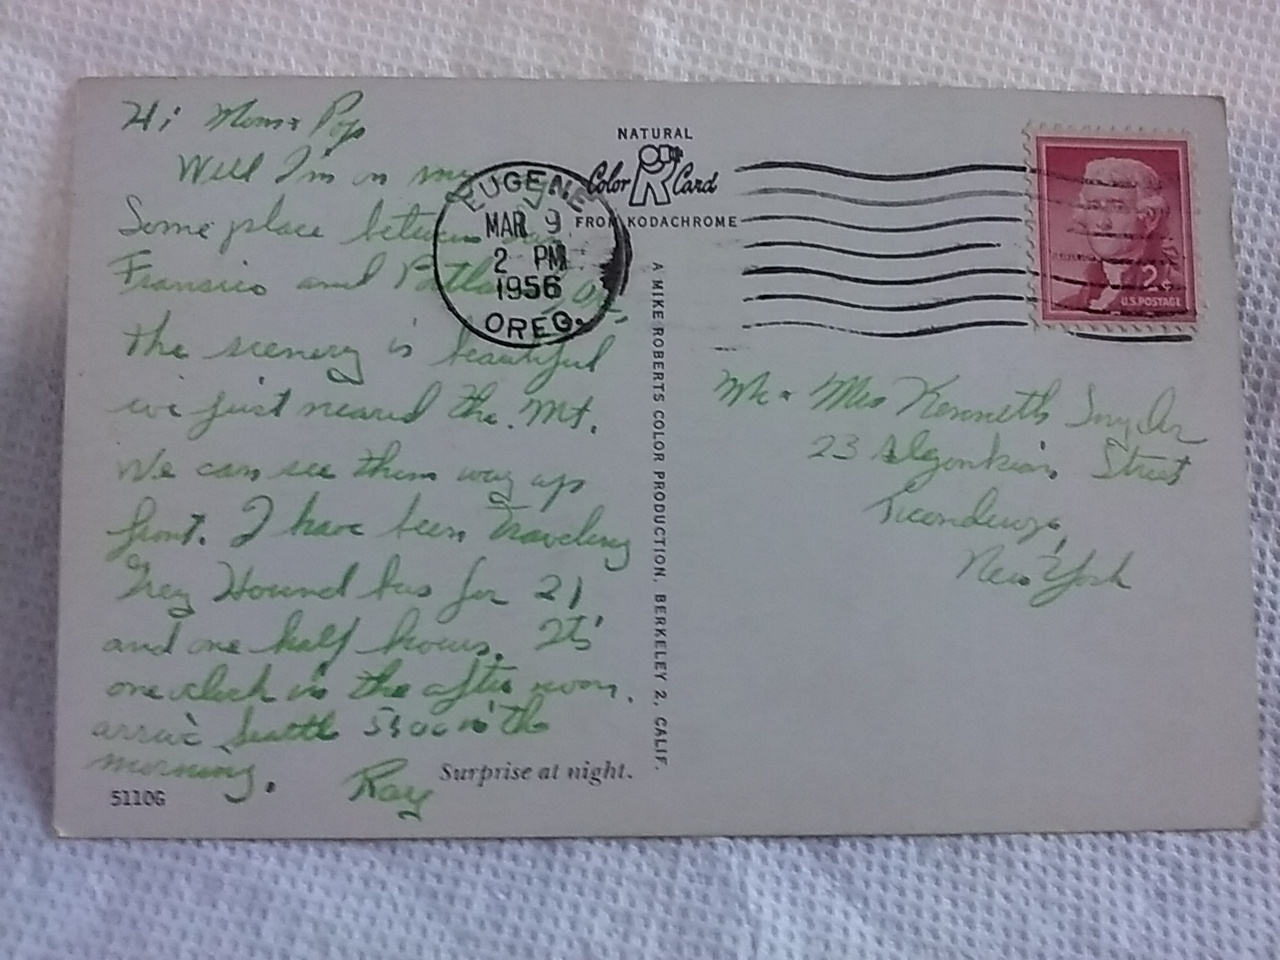 Hi Mom & Pop
Well I'm on my
Some place between San
Fransico and Portland Or.
the scenery is beautiful
we just neared the. Mt.
We can see them way up
front. I have been traveling
Grey Hound bus for 21
and one half hours. Its'
one oclock in the after noon.
arrive Seattle 5:30 in the
morning.
Ray
Surprise at night.
51106
NATURAL
Color Card
FROM KODACHROME
EUGENE
MAR 9
2 PM
1956
OREG.
A MIKE ROBERTS COLOR PRODUCTION, BERKELEY 2, CALIF.
2¢
U.S. POSTAGE
Mr & Mrs Kenneth Snyder
23 Algonkian Street
Ticonderoga,
New York